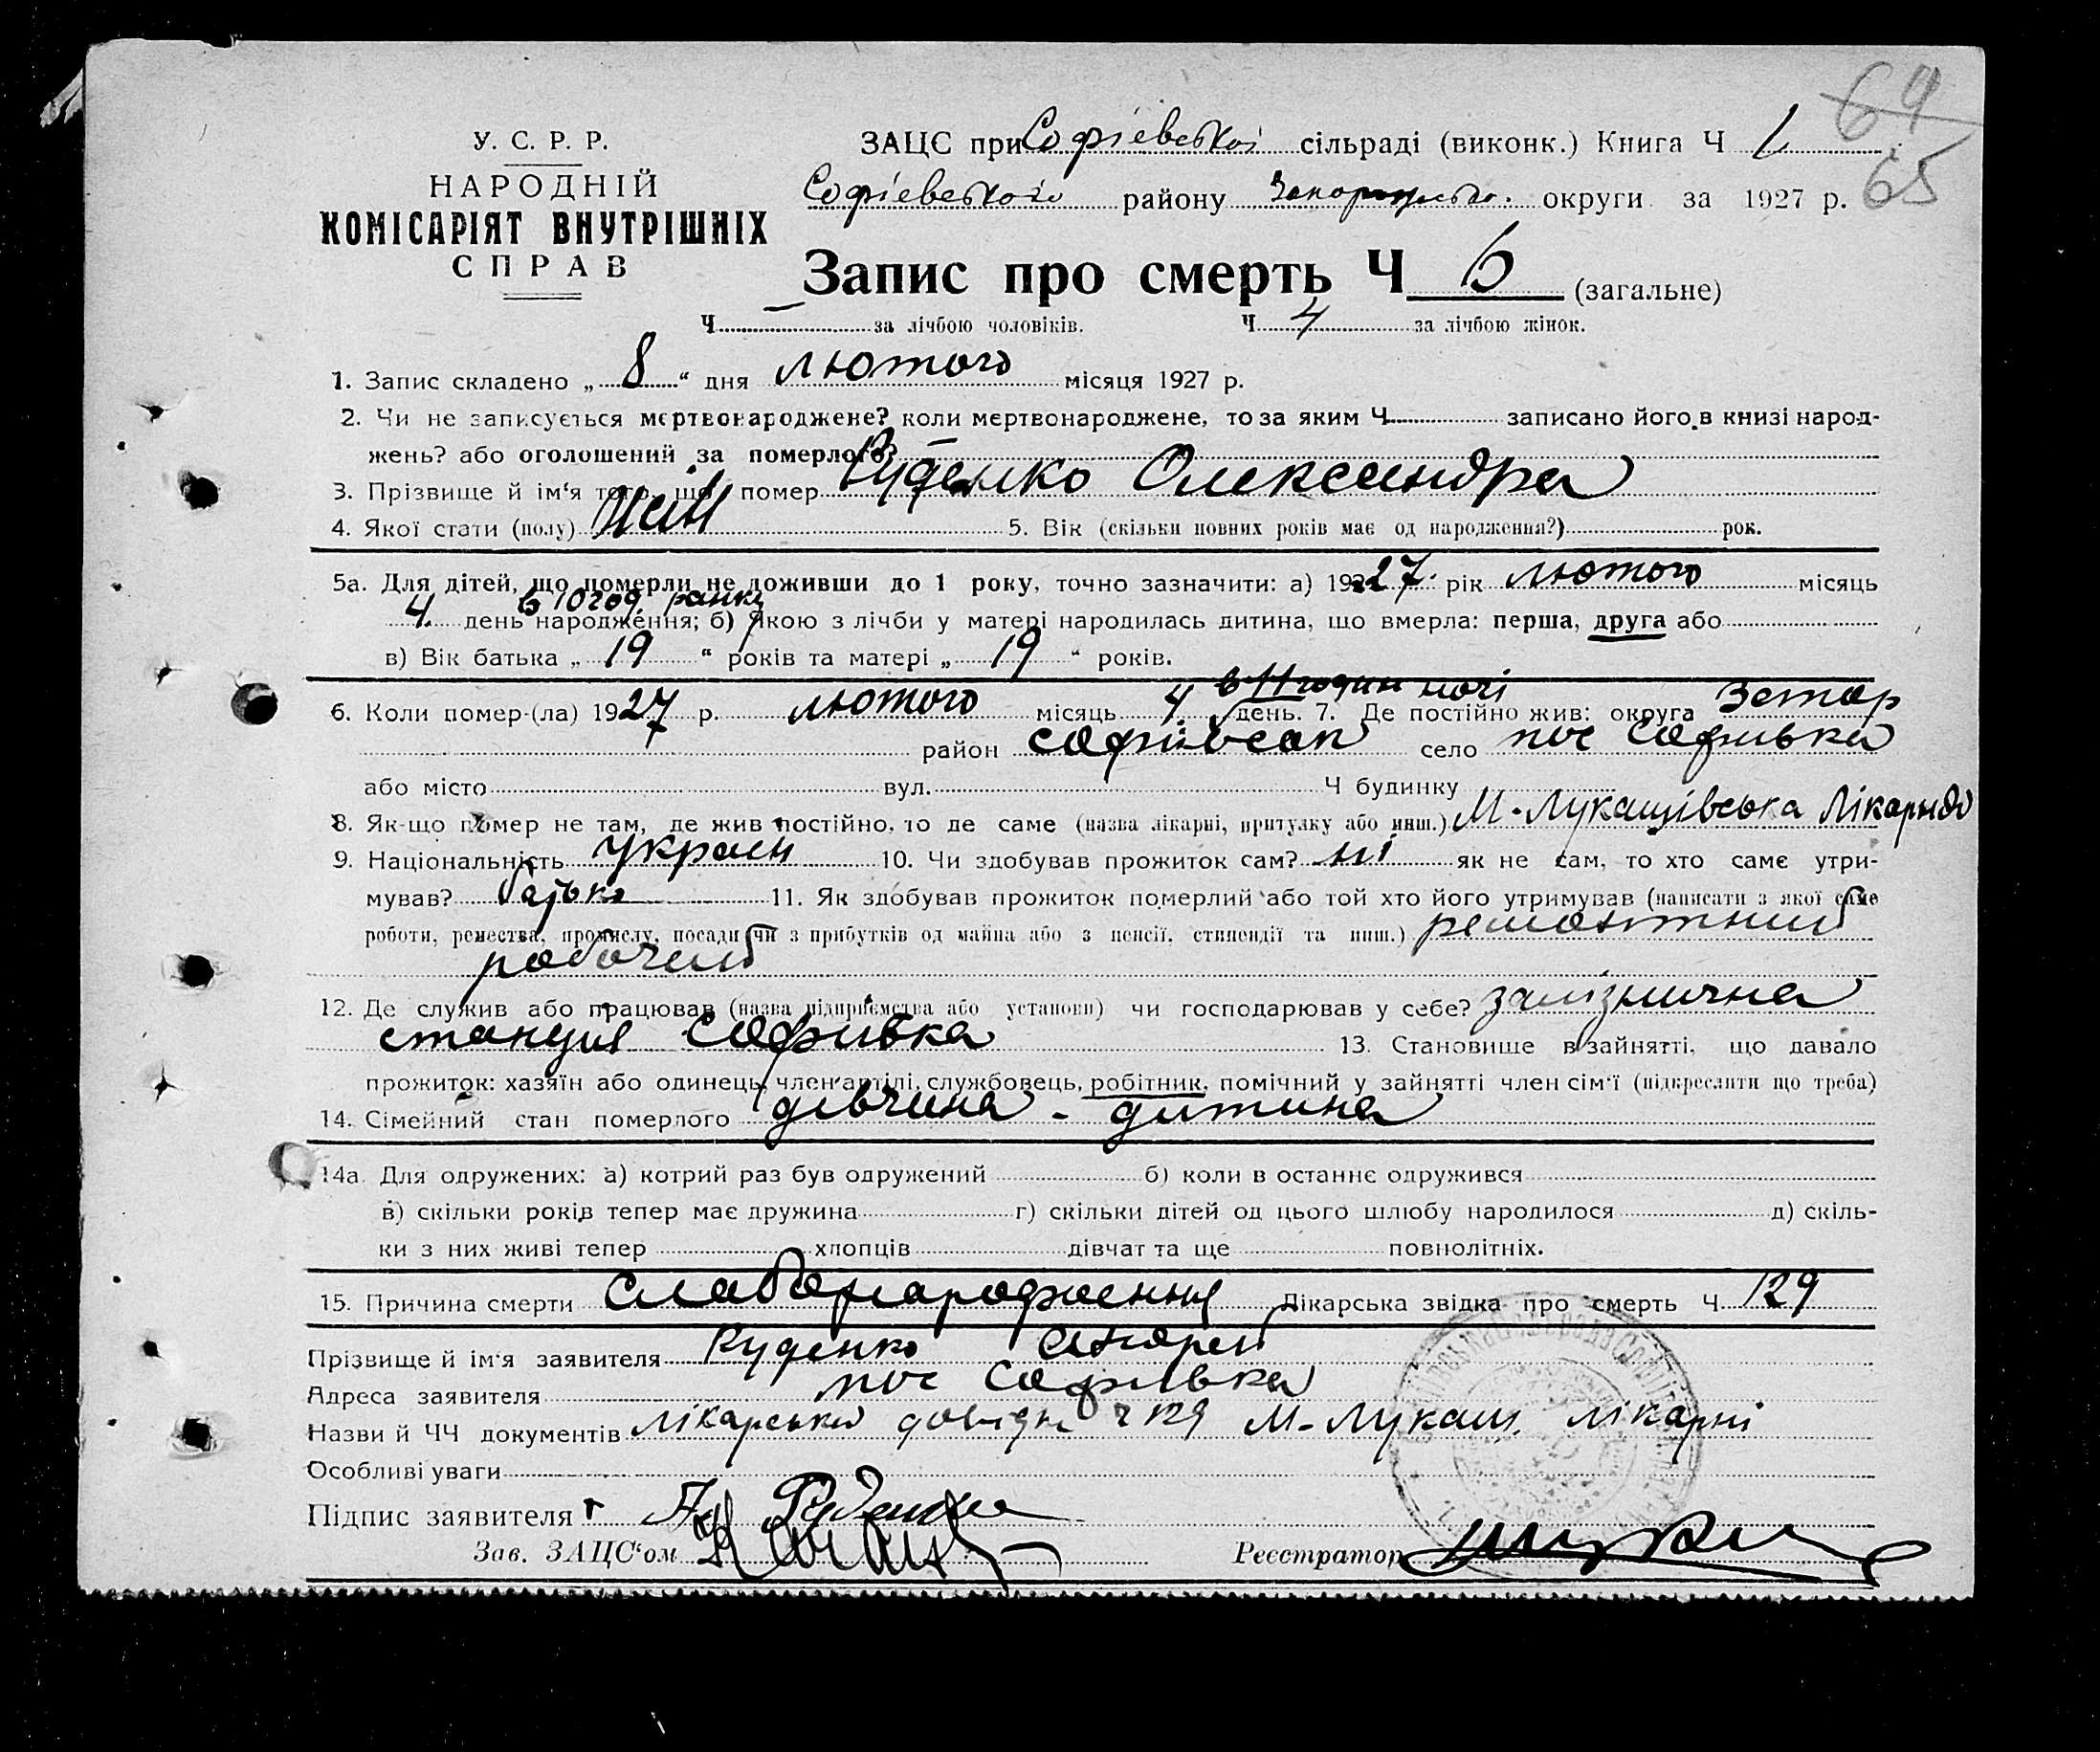 64
65
У. С. Р. Р.
НАРОДНІЙ
КОМІСАРІЯТ ВНУТРІШНІХ
СПРАВ
ЗАЦС при Софіевській сільраді (виконк.) Книга Ч 1
Софіевського району Запорізько. округи за 1927 р.
Запис про смерть Ч 6 (загальне)
Ч — за лічбою чоловіків. Ч 4 за лічбою жінок.
1. Запис складено „ 8 “ дня лютого місяця 1927 р.
2. Чи не записується мертвонароджене? коли мертвонароджене, то за яким Ч записано його в книзі народ-
жень? або оголошений за померлого? —
3. Прізвище й ім‘я того, що помер Руденко Олександра
4. Якої стати (полу) жін 5. Вік (скільки повних років має од народження?) рок.
5а. Для дітей, що померли не доживши до 1 року, точно зазначити: а) 1927 рік лютого місяць
4 день народження; в 10 год. ранку б) Якою з лічби у матері народилась дитина, що вмерла: перша, друга або
в) Вік батька „ 19 “ років та матері „ 19 “ років.
6. Коли помер-(ла) 1927 р. лютого місяць 4 в 11 годин ночі день. 7. Де постійно жив: округа Запор
район Софиівськ село пос Софиівка
або місто вул. Ч будинку
8. Як-що помер не там, де жив постійно, то де саме (назва лікарні, притулку або инш.) М-Лукашівська Лікарня
9. Національність Украин 10. Чи здобував прожиток сам? ні як не сам, то хто саме утри-
мував? батько 11. Як здобував прожиток померлий або той хто його утримував (написати з якої саме
роботи, ремества, промислу, посади чи з прибутків од майна або з пенсії, стипендії та инш.) ремонтний
рабочий
12. Де служив або працював (назва підприємства або установи) чи господарював у себе? залізнична
станция Софиівка 13. Становище в зайнятті, що давало
прожиток: хазяїн або одинець, член артілі, службовець, робітник, помічний у зайнятті член сім‘ї (підкреслити що треба)
14. Сімейний стан померлого дівчина - дитина
14а. Для одружених: а) котрий раз був одружений б) коли в останнє одружився
в) скільки років тепер має дружина г) скільки дітей од цього шлюбу народилося д) скіль-
ки з них живі тепер хлопців дівчат та ще повнолітніх.
15. Причина смерти Слабонародження Лікарська звідка про смерть Ч 129
Прізвище й ім‘я заявителя Руденко Андрей
Адреса заявителя пос Софиівка
Назви й ЧЧ документів лікарська довідка ч 129 М-Лукаш. лікарні
Особливі уваги
Підпис заявителя Руденко
Зав. ЗАЦС‘ом
Реєстратор